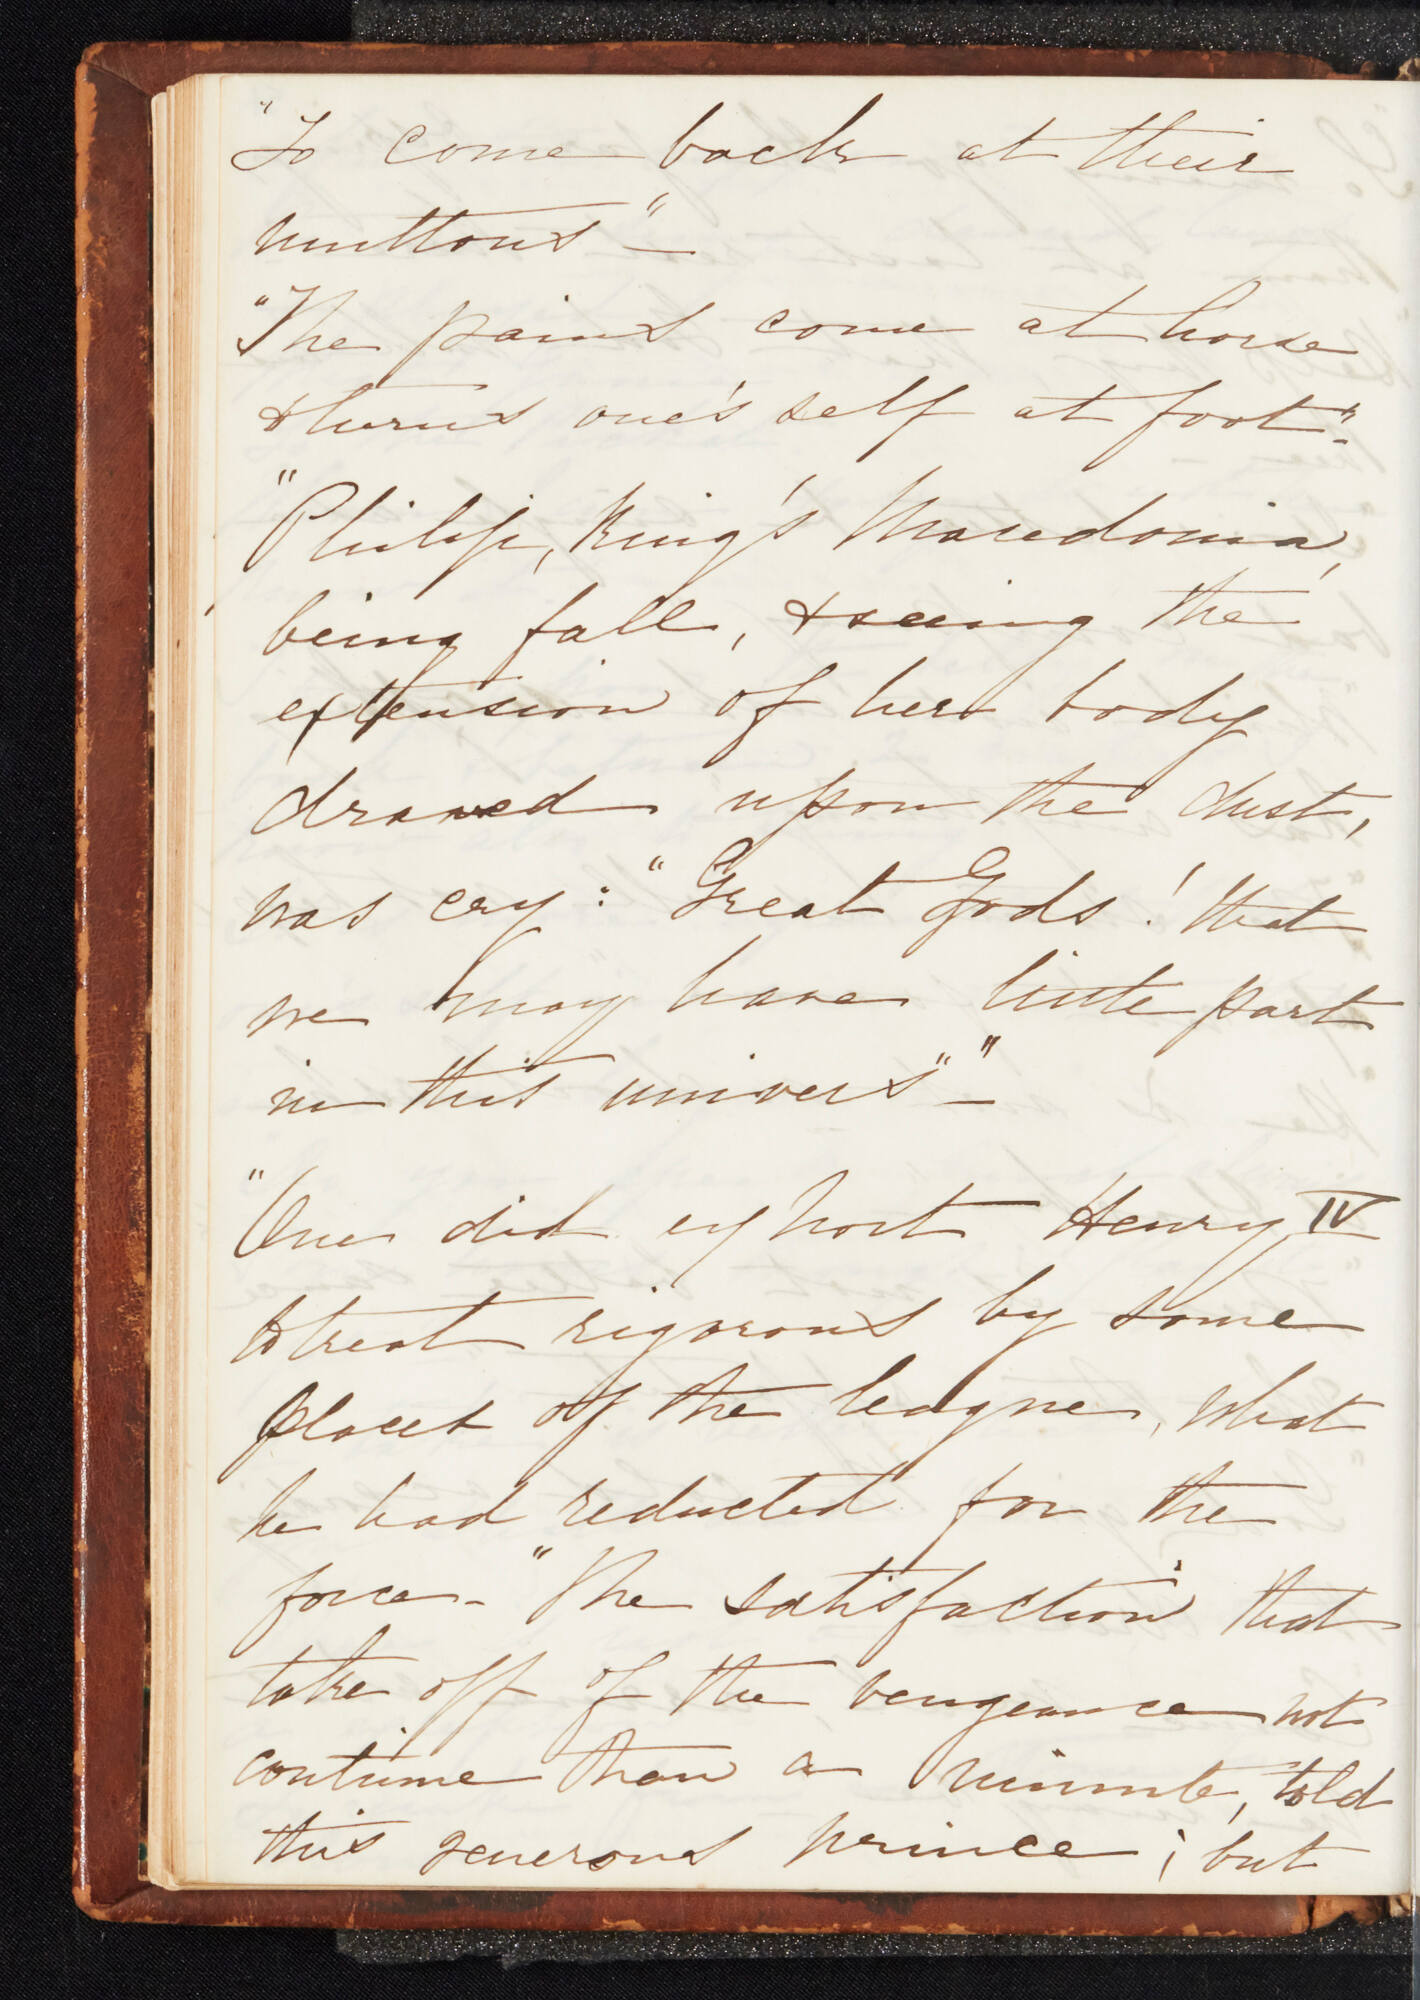 "To come back at their
muttons" —
"The pains come at horse
& turns one's self at foot" –
"Philip, King's Macedonia,
being fall, & seeing the
extension of her body
drawed upon the dust,
was cry : "Great Gods ! that
we may have little part
in this univers" " —
"One did exhort Henry IV
to treat rigorous by some
places of the league, what
he had reducted for the
force – "The satisfaction that
take off of the vengeance not
contume than a minute, told
this generous prince ; but